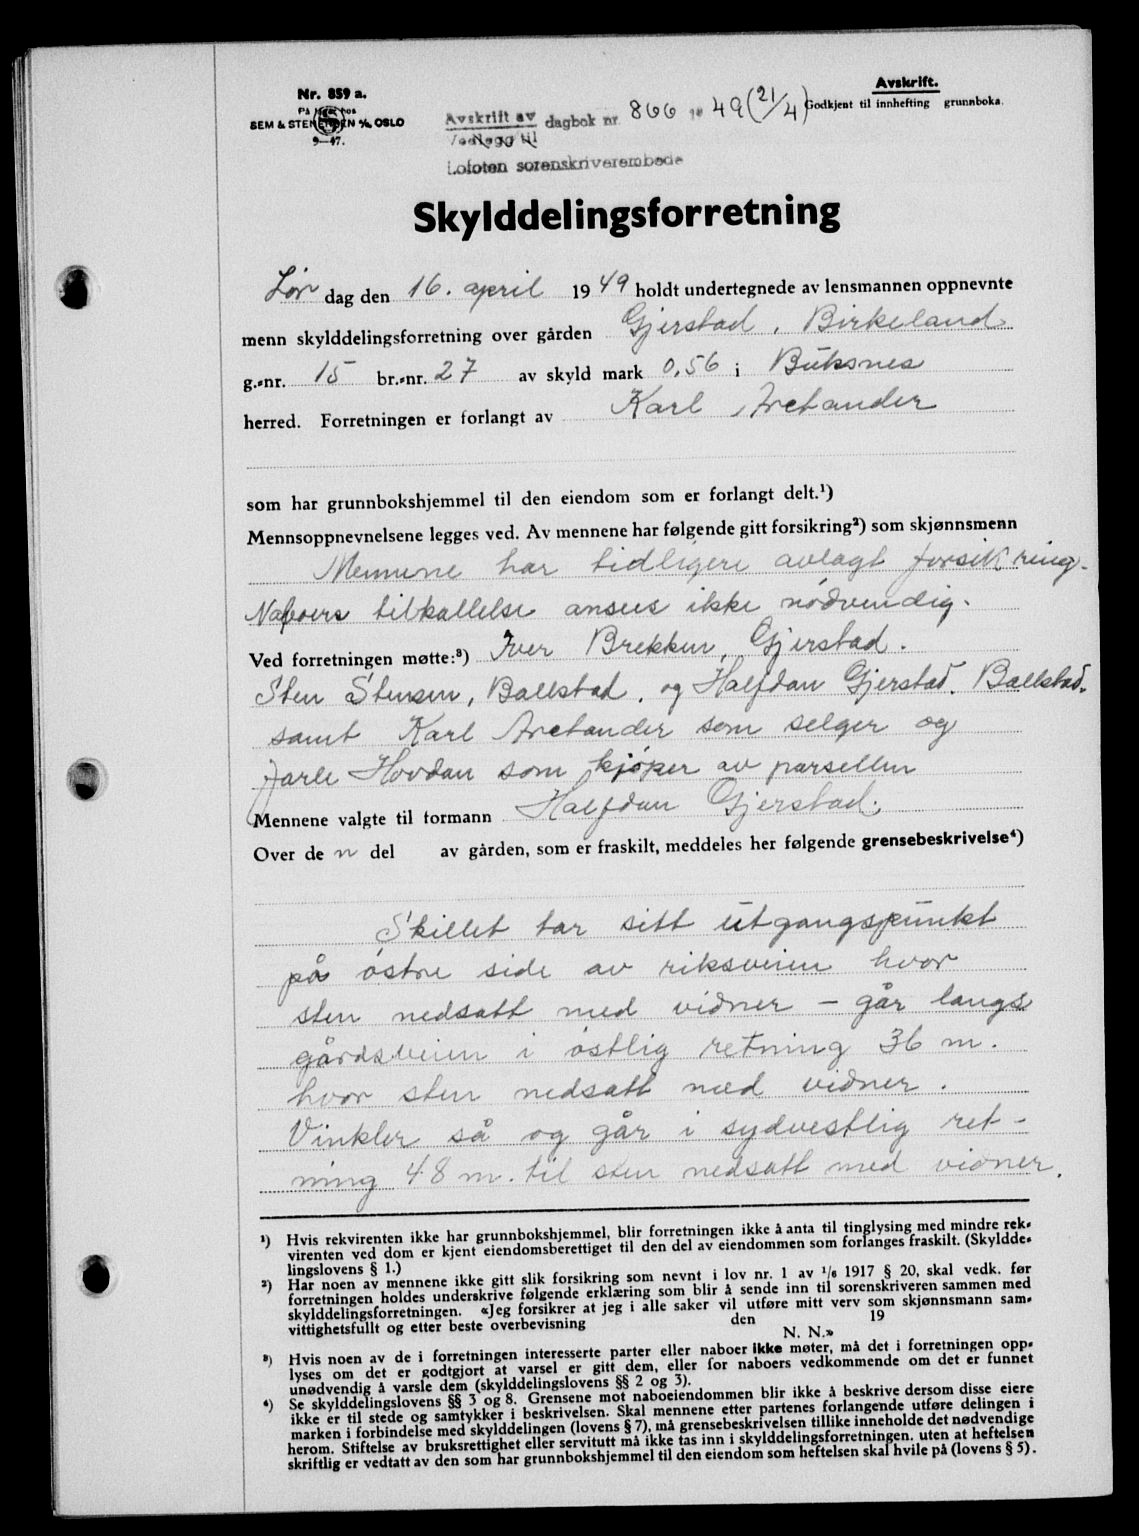 Nr. 859 a.
På lager hos
SEM & STENERSEN A/S, OSLO
9—47.
Avskrift.
Godkjent til innhefting grunnboka.
Avskrift av dagbok nr. 866 19 49 (21/4)
Vedlegg til
Lofoten sorenskriverembede
Skylddelingsforretning
Lør dag den 16. april 1949 holdt undertegnede av lensmannen oppnevnte
menn skylddelingsforretning over gården Gjerstad, Birkeland
g.-nr. 15 br.-nr. 27 av skyld mark 0,56 i Buksnes
herred. Forretningen er forlangt av Karl Arctander
som har grunnbokshjemmel til den eiendom som er forlangt delt.¹)
Mennsoppnevnelsene legges ved. Av mennene har følgende gitt forsikring²) som skjønnsmenn
Mennene har tidligere avlagt forsikring.
Naboers tilkallelse ansees ikke nødvendig.
Ved forretningen møtte:³) Iver Brekken, Gjerstad.
Sten Stensen, Ballstad, og Halfdan Gjerstad, Ballstad,
samt Karl Arctander som selger og
Jarle Hovdan som kjøper av parsellen
Mennene valgte til formann Halfdan Gjerstad.
Over de n del av gården, som er fraskilt, meddeles her følgende grensebeskrivelse⁴)
Skillet tar sitt utgangspunkt
på østre side av riksveien hvor
sten nedsatt med vidner – går langs
gårdsveien i østlig retning 36 m.
hvor sten nedsatt med vidner.
Vinkler så og går i sydvestlig ret-
ning 48 m. til sten nedsatt med vidner.
¹) Hvis rekvirenten ikke har grunnbokshjemmel, blir forretningen ikke å anta til tinglysing med mindre rek-
virenten ved dom er kjent eiendomsberettiget til den del av eiendommen som forlanges fraskilt. (Skyldde-
lingslovens § 1.)
²) Har noen av mennene ikke gitt slik forsikring som nevnt i lov nr. 1 av 1/6 1917 § 20, skal vedk. før
forretningen holdes underskrive følgende erklæring som blir å sende inn til sorenskriveren sammen med
skylddelingsforretningen. «Jeg forsikrer at jeg i alle saker vil utføre mitt verv som skjønnsmann sam-
vittighetsfullt og etter beste overbevisning den 19
N. N.»
³) Hvis noen av de i forretningen interesserte parter eller naboer ikke møter, må det i forretningen opp-
lyses om det er godtgjort at varsel er gitt dem, eller for naboers vedkommende om det er funnet
unødvendig å varsle dem (skylddelingslovens §§ 2 og 3).
⁴) Se skylddelingslovens §§ 3 og 8. Grensene mot naboeiendommen blir ikke å beskrive dersom disse eiere
ikke er til stede og samtykker i beskrivelsen. Skal mennene etter partenes forlangende utføre delingen i
marken i forbindelse med skylddelingen (lovens § 7), må grensebeskrivelsen tillike inneholde det nødvendige
herom. Stiftelse av bruksrettighet eller servitutt må ikke tas inn i skylddelingsforretningen, uten at heftelsen
skriftlig er vedtatt av den som har grunnbokshjemmel til den eiendom som heftelsen skal hvile på (lovens § 5).